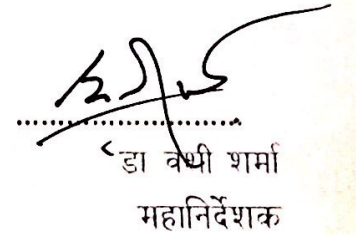 डा वंशी शर्मा
महानिर्देशक